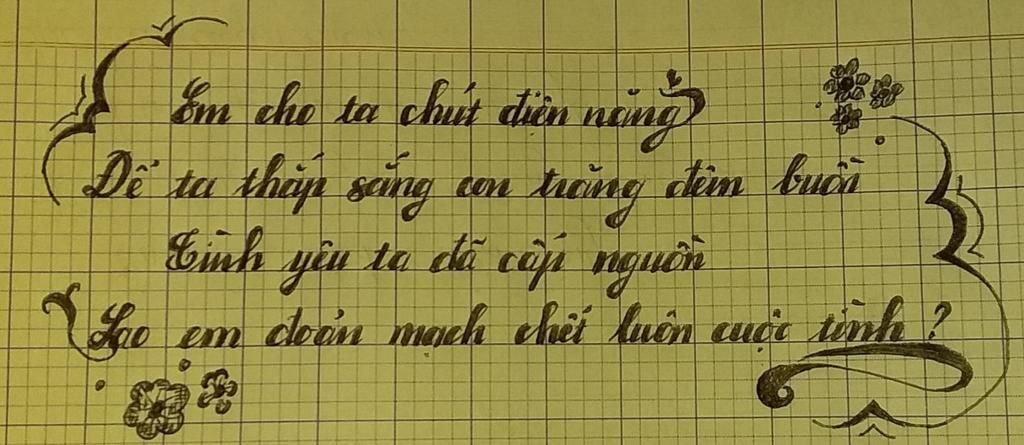 Em cho ta chút điện năng
Để ta thắp sáng con trăng đêm buồn
Tình yêu ta đã cấp nguồn
Sao em đoản mạch chết luôn cuộc tình ?